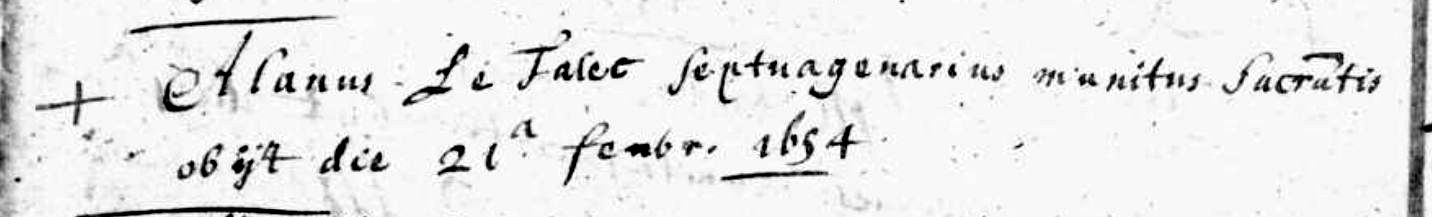 + Alanus Le Talec septuagenarius munitus Sacrãtis
obijt die 21ª febvr. 1654